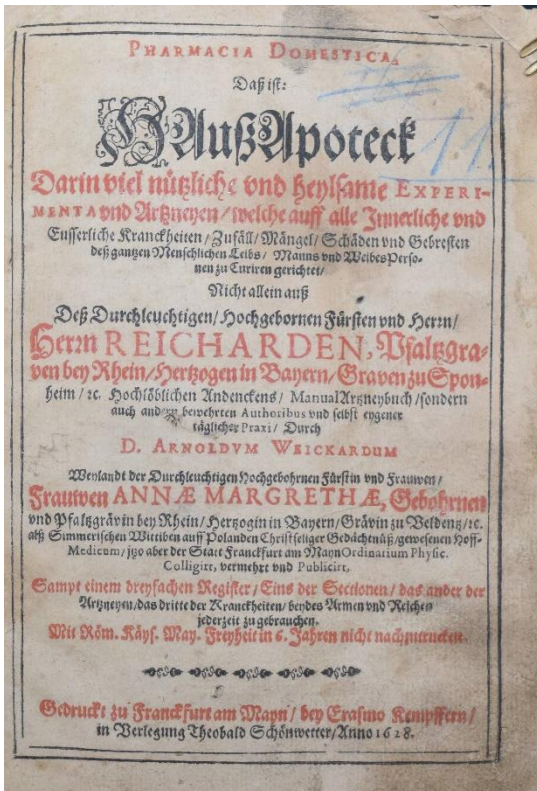 PHARMACIA DOMESTICA.
Daß ist:
HAußApoteck
Darin viel nützliche vnd heylsame EXPERI-
MENTA vnd Artzneyen / welche auff alle Innerliche vnd
Eusserliche Kranckheiten / Zufäll / Mängel / Schäden vnd Gebresten
deß gantzen Menschlichen Leibs / Manns vnd Weibes Perso-
nen zu Curiren gerichtet /
Nicht allein auß
Deß Durchleuchtigen / Hochgebornen Fürsten vnd Herrn /
Herrn REICHARDEN, Pfaltzgra-
ven bey Rhein / Hertzogen in Bayern / Graven zu Spon-
heim / ꝛc. Hochlöblichen Andenckens / Manual Artzneybuch / sondern
auch andern bewehrten Authoribus vnd selbst eygener
täglicher Praxi / Durch
D. ARNOLDVM WEICKARDUM
Weylandt der Durchleuchtigen Hochgebohrnen Fürstin vnd Frauwen /
Frauwen ANNÆ MARGRETHÆ, Gebohrnen
vnd Pfaltzgrävin bey Rhein / Hertzogin in Bayern / Grävin zu Veldentz / ꝛc.
alß Simmerischen Wittiben auff Polanden Christseliger Gedächtnüß / gewesenen Hoff-
Medicum, jtzo aber der Statt Franckfurt am Mayn Ordinarium Physic.
Colligirt, vermehrt vnd Publicirt,
Sampt einem dreyfachen Register / Eins der Sectionen / das ander der
Artzneyen / das dritte der Kranckheiten / beydes Armen vnd Reichen
jederzeit zu gebrauchen.
Mit Röm. Käys. May. Freyheit in 6. Jahren nicht nachzutrucken.
Gedruckt zu Franckfurt am Mayn / bey Erasmo Kempffern /
in Verlegung Theobald Schönwetter / Anno 1628.